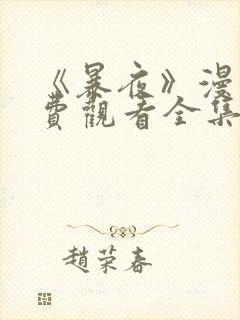 《暴夜》漫
費觀看全集
趙荣春